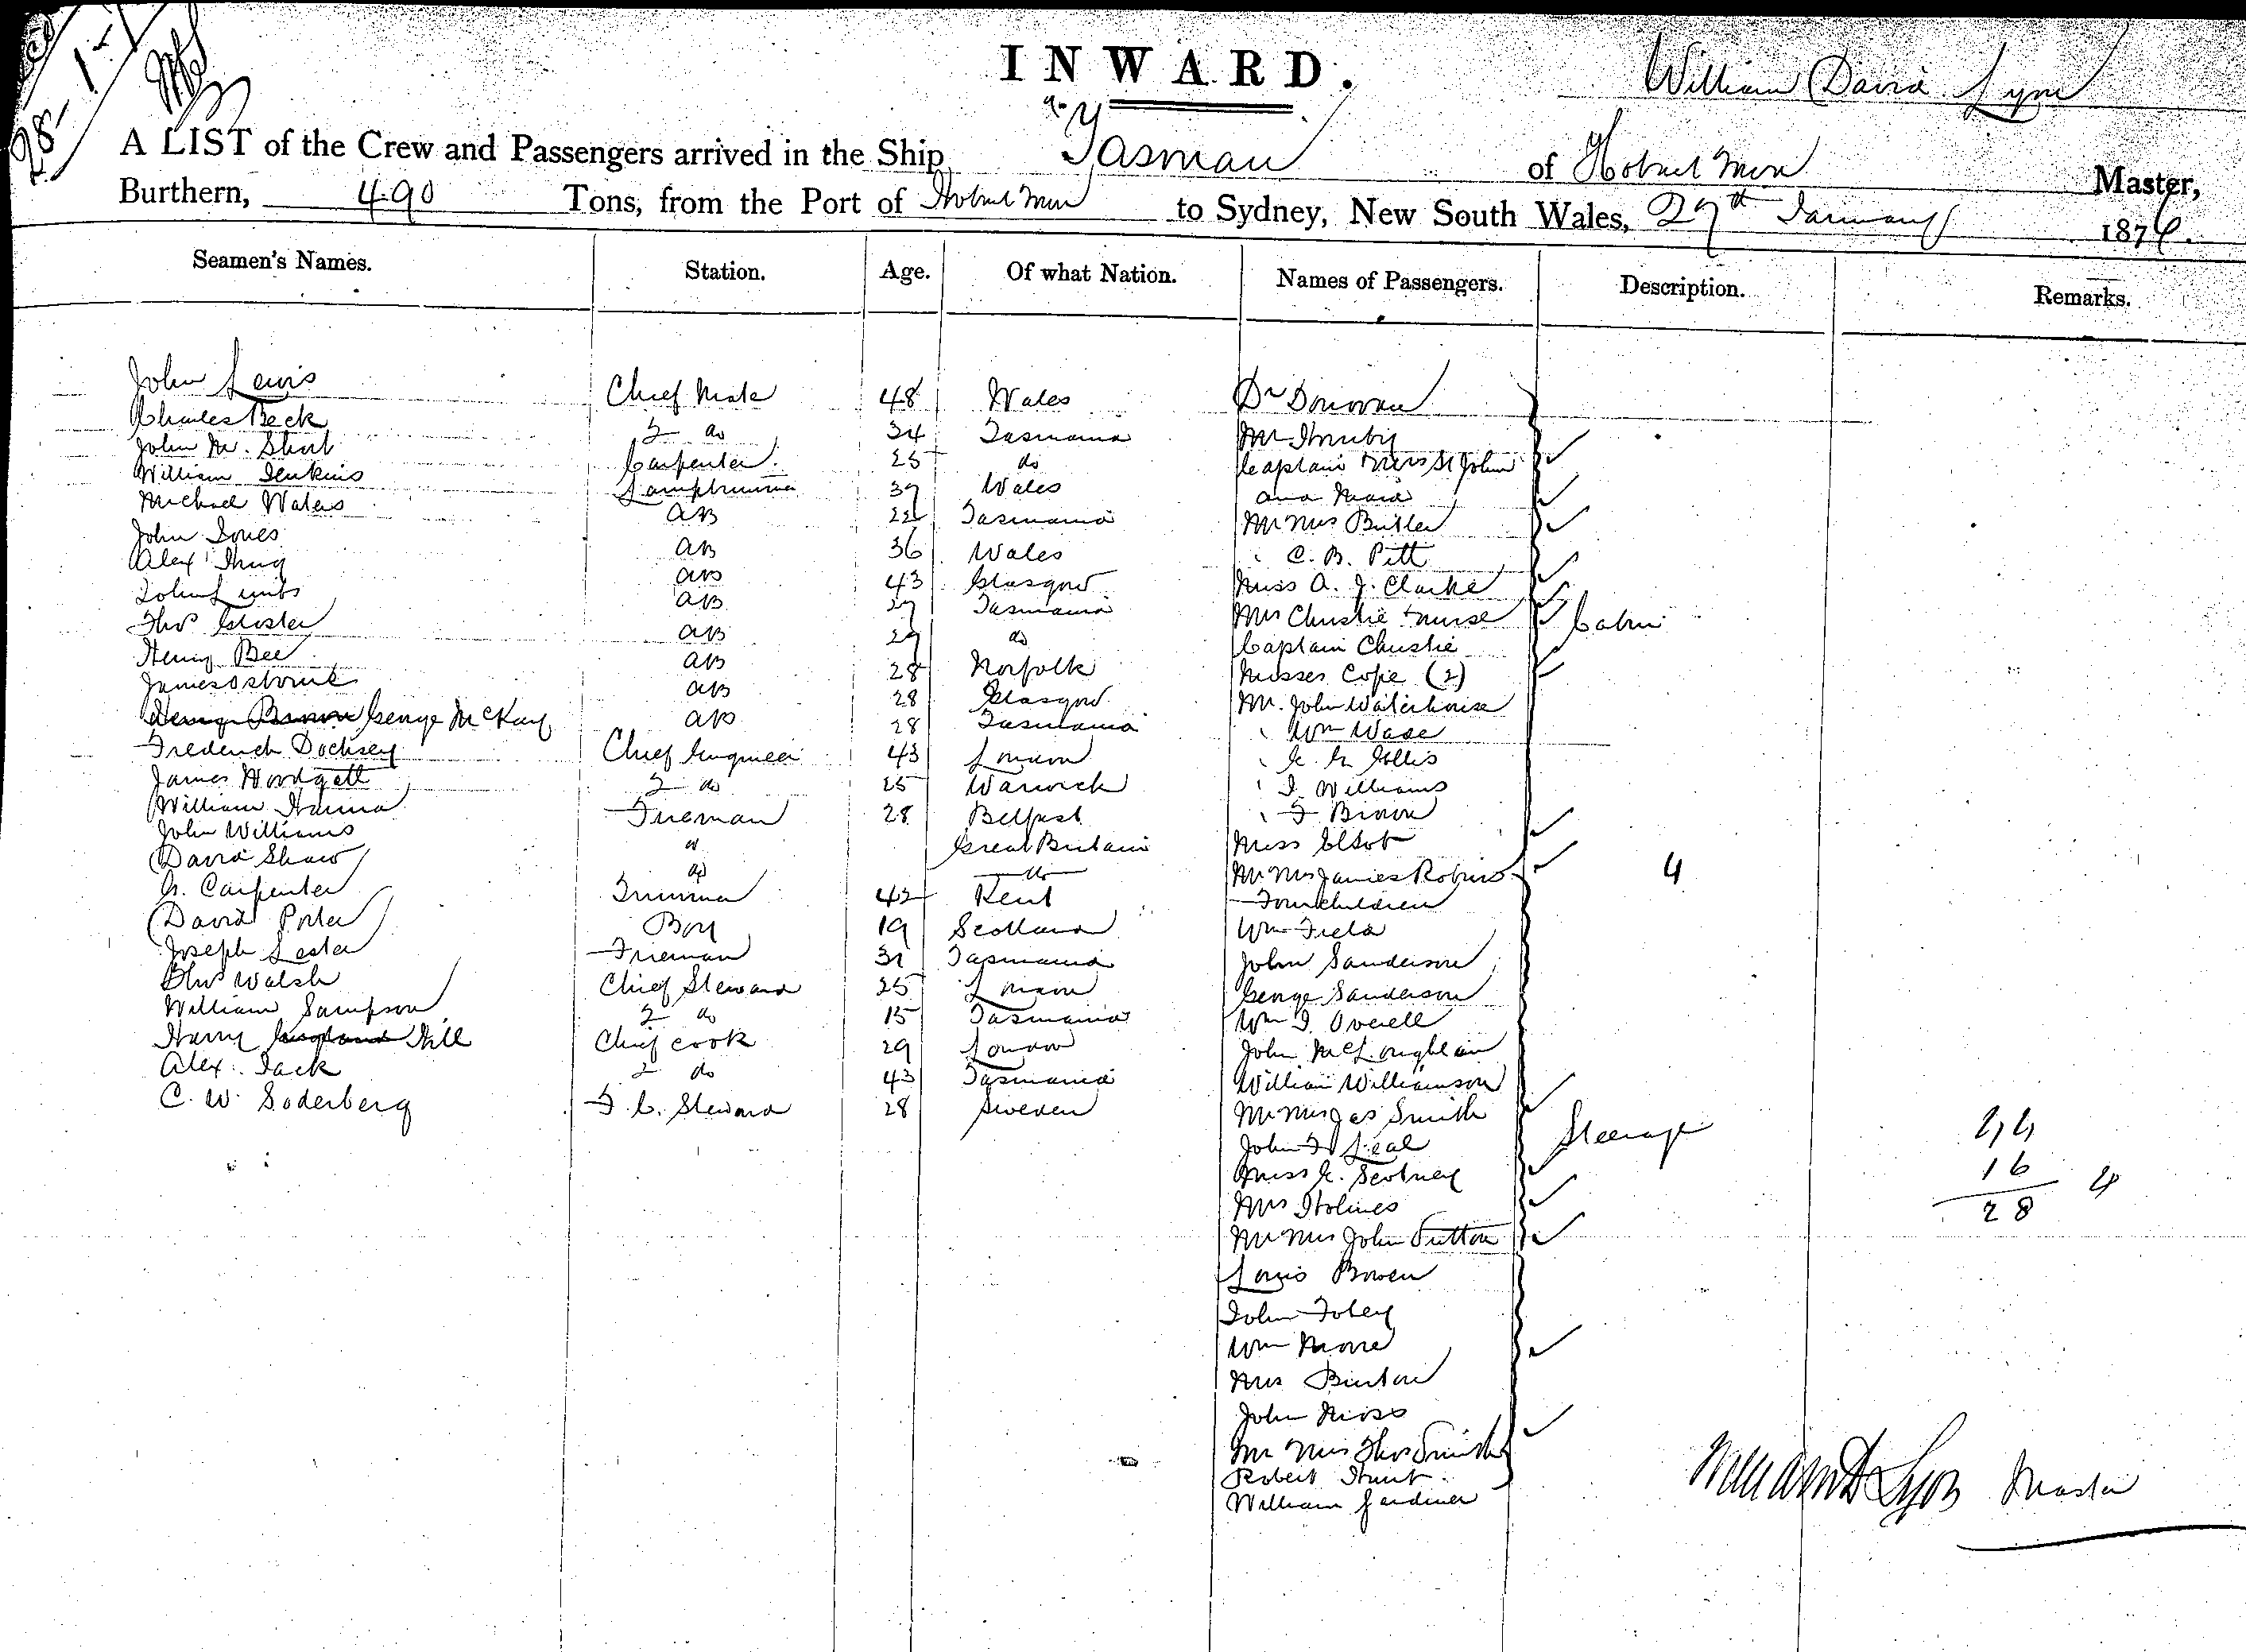 INWARD.
William David Lyon
A LIST of the Crew and Passengers arrived in the Ship Tasman of Hobart Town Master,
Burthern, 490 Tons, from the Port of Hobart Town to Sydney, New South Wales, 27th January 1876.
Seamen's Names. Station. Age. Of what Nation. Names of Passengers. Description. Remarks.
John Lewis Chief Mate 48 Wales Dr Donovan
Charles Beck 2 do 34 Tasmania Mr
John M. Short Carpenter 25 do Captain Mrs St John
William Jenkins Lamptrimmer 39 Wales and Maid
Michael Waters AB 22 Tasmania Mr Mrs Butler
John Jones AB 36 Wales C. B. Pitt
Alex AB 43 Glasgow Miss A. J. Clarke
John AB 27 Tasmania Mrs Christie + nurse Cabin
Thos Gloster AB 29 do Captain Christie
Henry Bee AB 28 Norfolk Misses Cope (2)
James Osborne AB 28 Glasgow Mr. John Waterhouse
George McKay AB 28 Tasmania Wm Wade
Frederick Docksey Chief Engineer 43 London
James Woodgatt 2 do 25 Warwick Williams
William Hanna Fireman 28 Belfast F
John Williams do Great Britain Miss
David Shaw do do Mr Mrs James Robins 4
G. Carpenter Trimmer 42 Kent Four Children
David Porter Boy 19 Scotland Wm Field
Joseph Lester Fireman 31 Tasmania John Sanderson
Thos Walsh Chief Steward 25 London George Sanderson
William Sampson 2 do 15 Tasmania Wm J. Overell
Harry Hill Chief Cook 29 London John McLoughlan
Alex. Jack 2 do 43 Tasmania William Williamson
C. W. Soderberg F. C. Steward 28 Sweden Mr Mrs Jas Smith
John F Leal Steerage 44
Miss E. Scotney 16 4
Mrs Holmes 28
Mr Mrs John Sutton
Louis Bowen
John Foley
Wm Moore
Mrs Burton
John
Mr Mrs Thos Smith
Robert Hunt
William Gardiner
William D Lyon Master